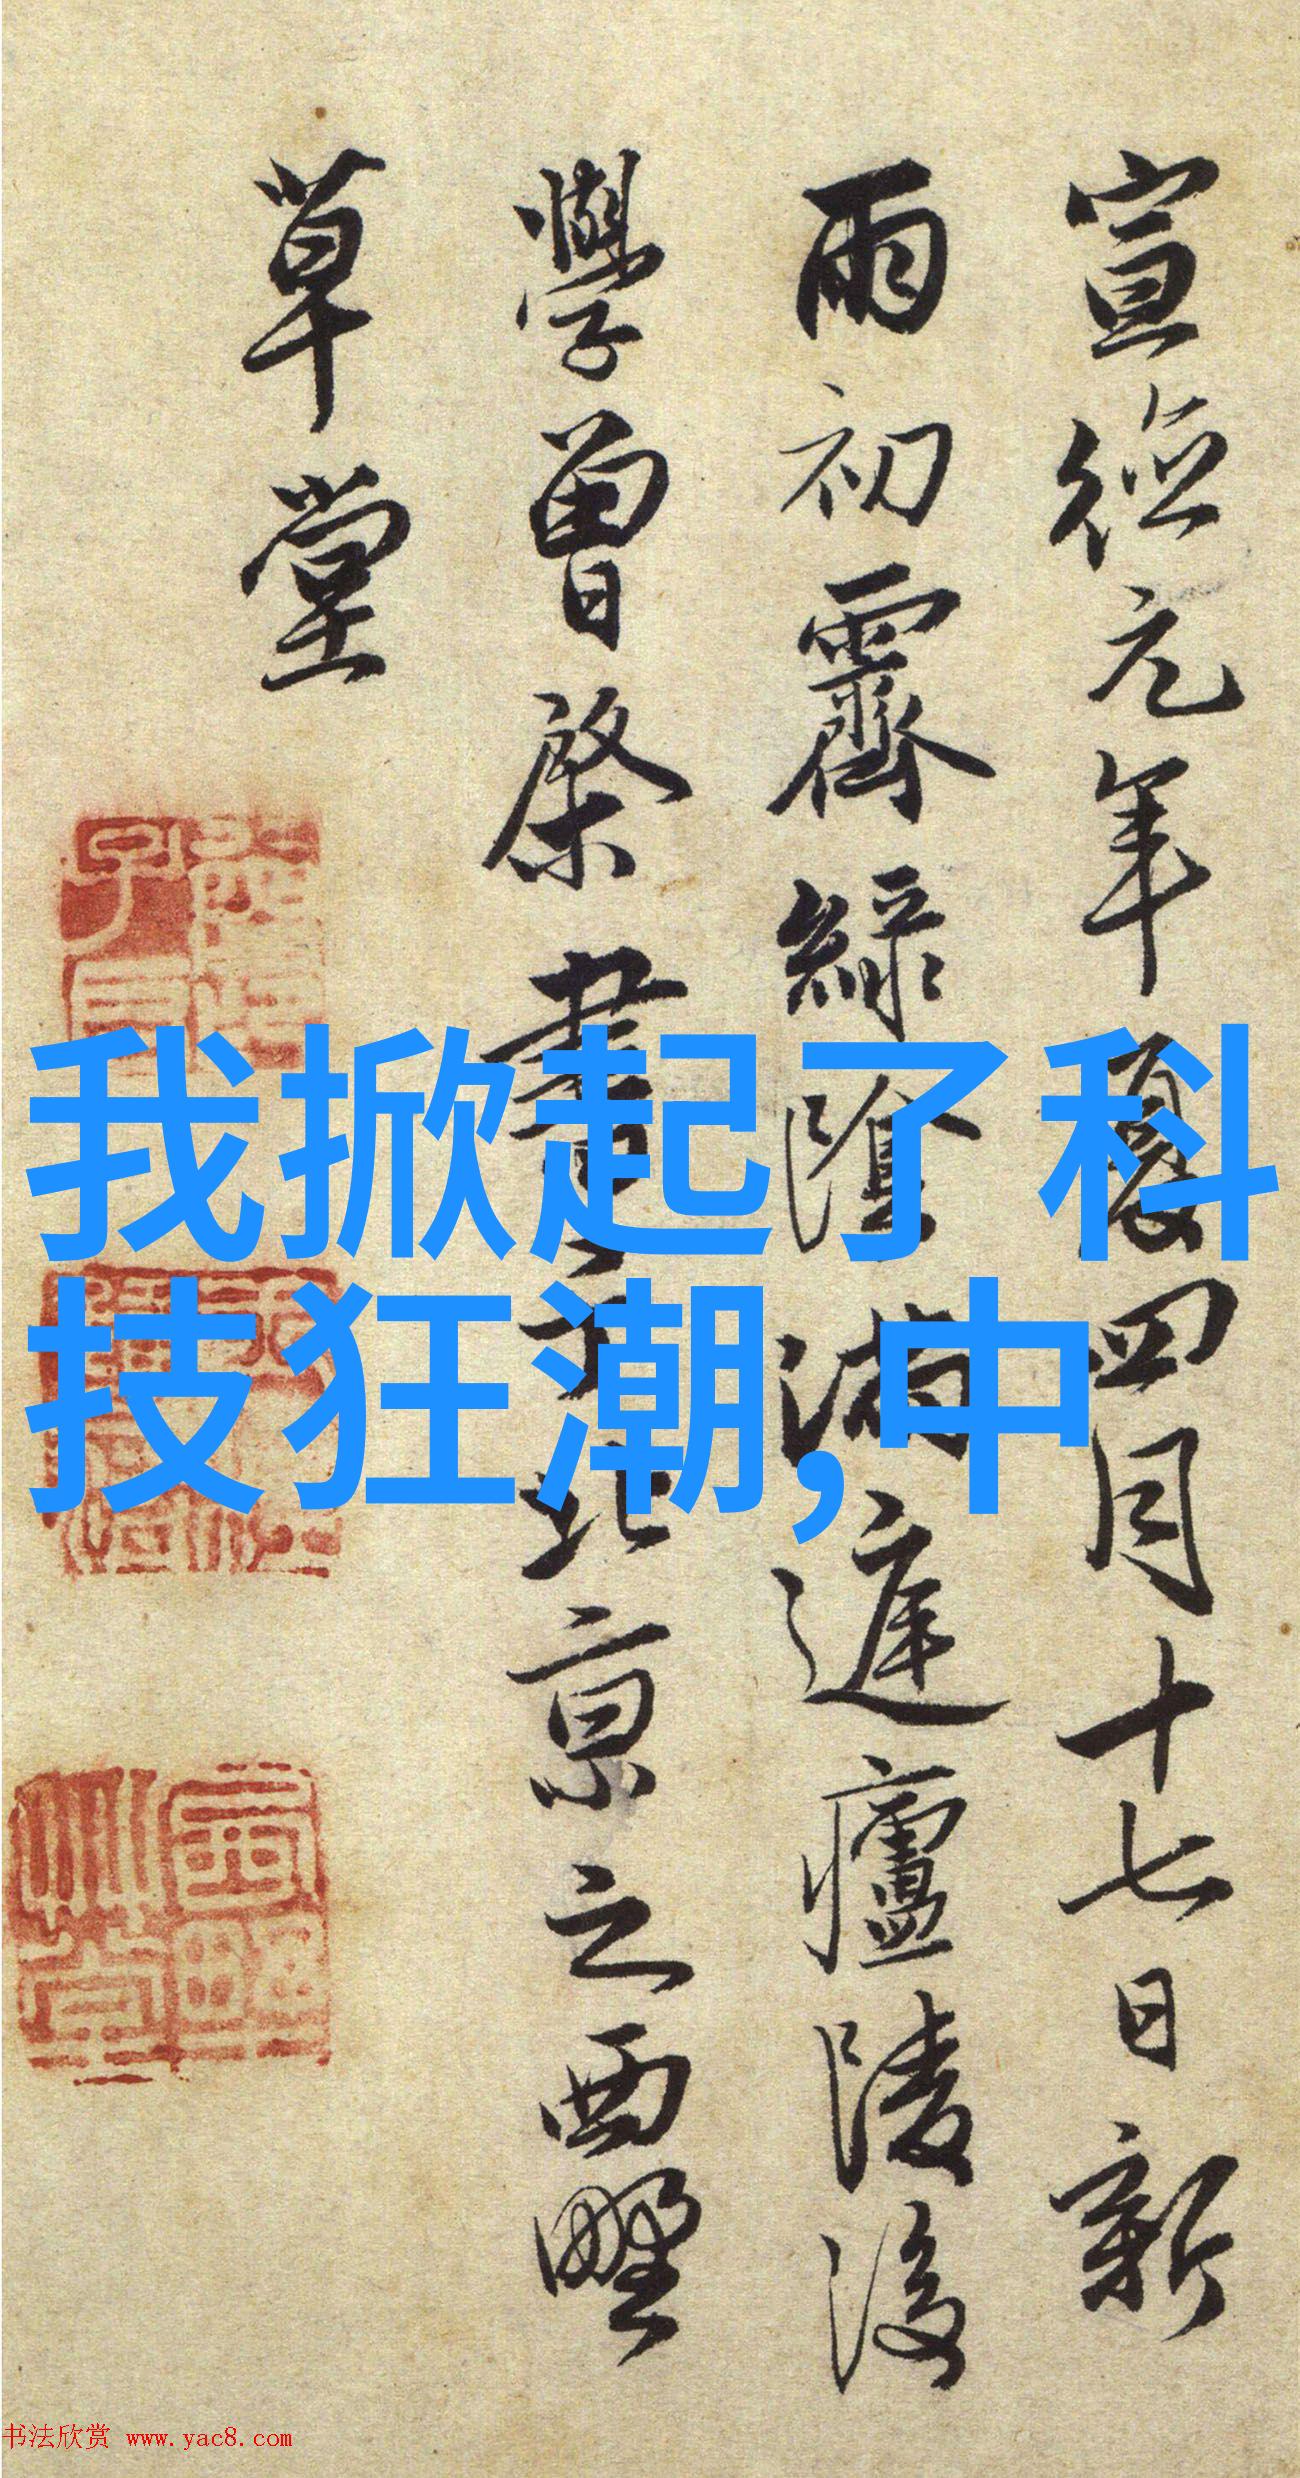 宣德元年夏四月十七日新
雨初霽綠陰滿庭廬陵後
學曾棨書于北京之西墅
草堂
我掀起了科
技狂潮,中
书法欣赏 www.yac8.com